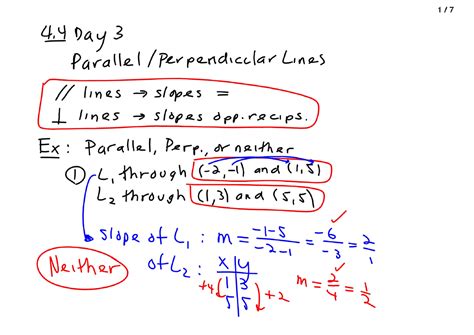 1 / 7
4.4 Day 3
Parallel / Perpendicular Lines
// lines → slopes =
⊥ lines → slopes opp. recips.
Ex: Parallel, Perp., or neither
① L₁ through (-2,-1) and (1,5)
L₂ through (1,3) and (5,5)
slope of L₁ : m = -1-5 / -2-1 = -6 / -3 = 2 / 1
Neither
of L₂ : x | y
1 | 3
5 | 5
+4
+2
m = 2/4 = 1/2